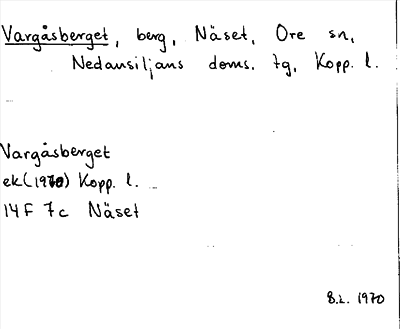 Vargåsberget, berg, Näset, Ore sn,
Nedansiljans doms. tg, Kopp. l.
Vargåsberget
ek(1970) Kopp. l.
14F 7c Näset
B.L. 1970